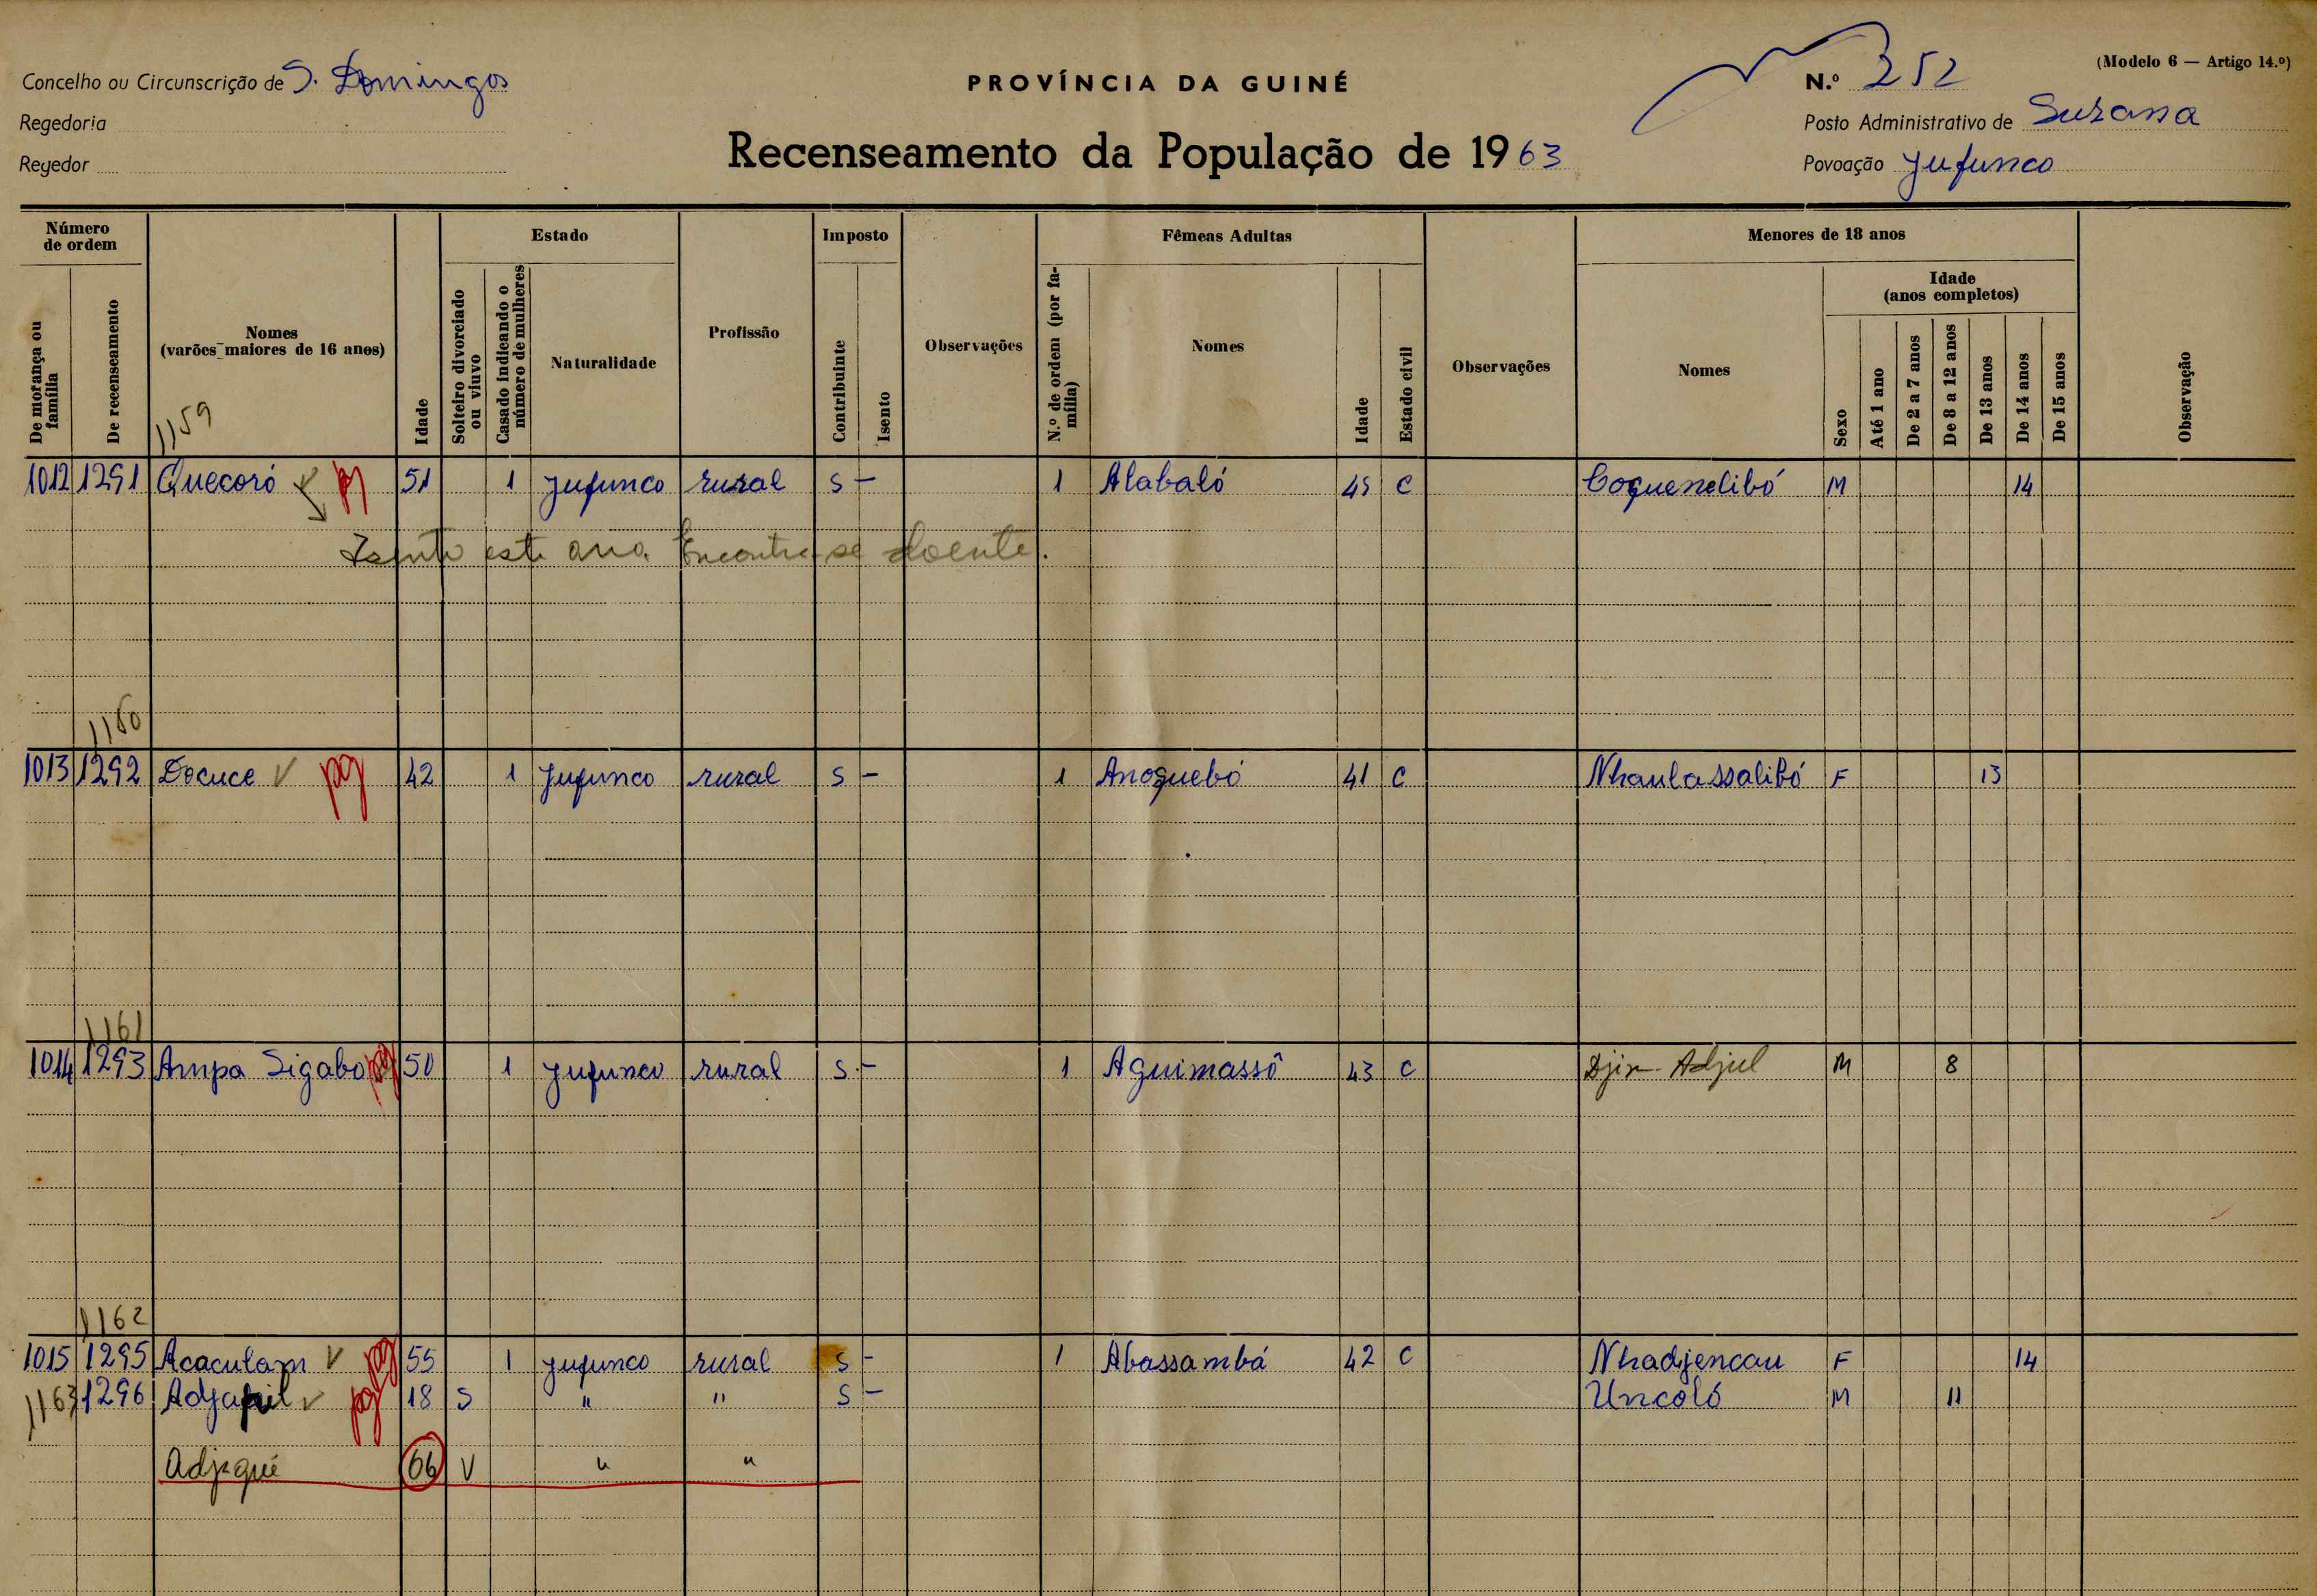 (Modelo 6 — Artigo 14.º)
Concelho ou Circunscrição de S. Domingos
PROVÍNCIA DA GUINÉ
N.º 252
Regedoria
Posto Administrativo de Suzana
Regedor
Recenseamento da População de 1963
Povoação Jufunco
Número de ordem
Estado
Imposto
Fêmeas Adultas
Menores de 18 anos
De morança ou família
De recenseamento
Nomes (varões maiores de 16 anos)
Idade
Solteiro divorciado ou viuvo
Casado indicando o número de mulheres
Naturalidade
Profissão
Contribuinte
Isento
Observações
N.º de ordem (por família)
Nomes
Idade
Estado civil
Observações
Nomes
Sexo
Idade (anos completos)
Até 1 ano
De 2 a 7 anos
De 8 a 12 anos
De 13 anos
De 14 anos
De 15 anos
Observação
1159
1012 1291 Quecoró pg 51 1 Jufunco rural S — 1 Alabaló 45 C Coquenelibó M 14
Isento este ano. Encontra se doente.
1160
1013 1292 Docuce V pg 42 1 Jufunco rural S — 1 Anoquebó 41 C Nhaulassalibó F 13
1161
1014 1293 Ampa Sigabo pg 50 1 Jufunco rural S — 1 Aguimassô 43 C Djin-Adjul M 8
1162
1015 1295 Acaculam V pg 55 1 Jufunco rural S — 1 Abassambá 42 C Nhadjencau F 14
1163 1296 V pg 18 S " " S — Uncoló M 11
Adjequé 66 V " "